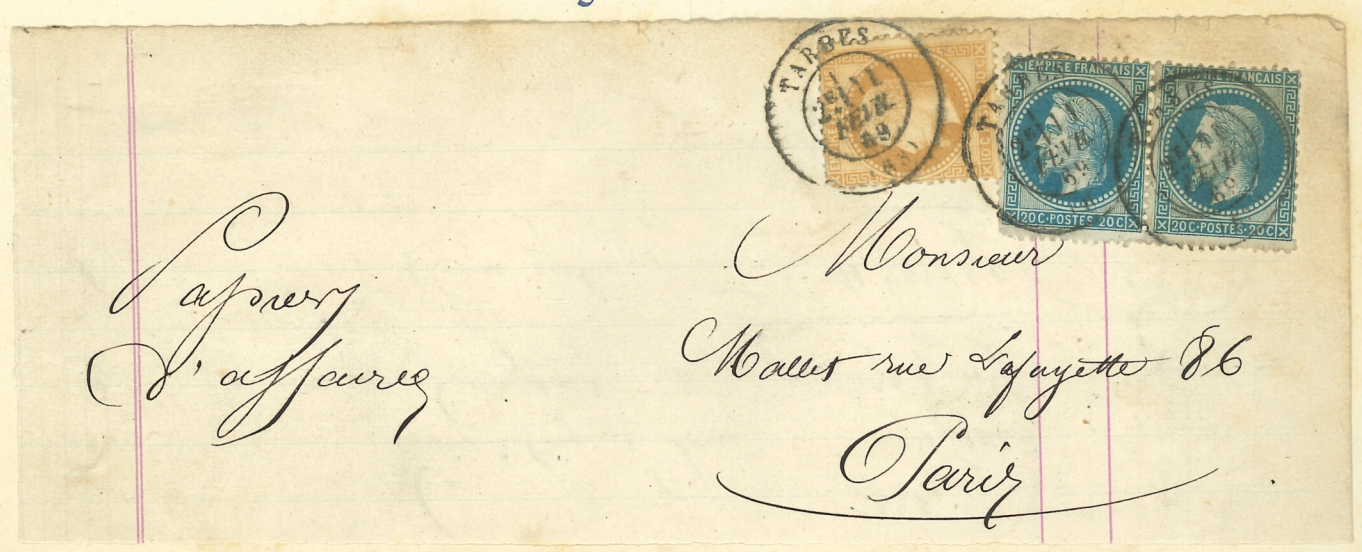 TARBES
1
2E / 11
FEVR.
69
(63)
EMPIRE FRANÇAIS
20C·POSTES·20C
EMPIRE FRANÇAIS
20C·POSTES·20C
10C
Papiers
d'affaires
Monsieur
Mallet rue Lafayette 86
Paris